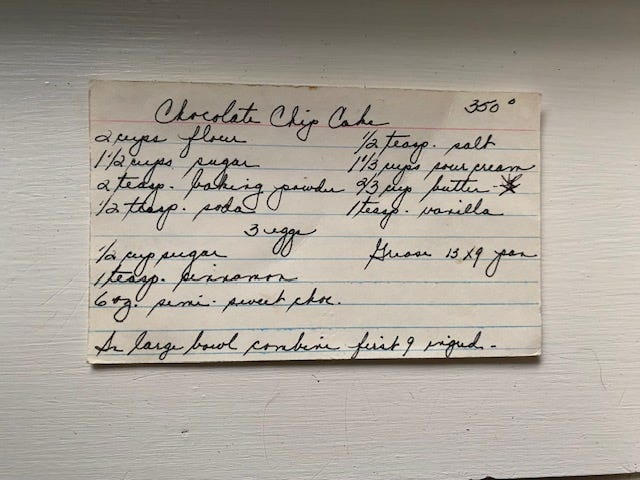 Chocolate Chip Cake 350°
2 cups flour 1/2 teasp. salt
1 1/2 cups sugar 1 1/3 cups sour cream
2 teasp. baking powder 2/3 cup butter - *
1/2 teasp. soda 1 teasp. vanilla
3 eggs
1/2 cup sugar Grease 13 X 9 pan
1 teasp. cinnamon
6 oz. semi-sweet choc.
In large bowl combine first 9 ingred-